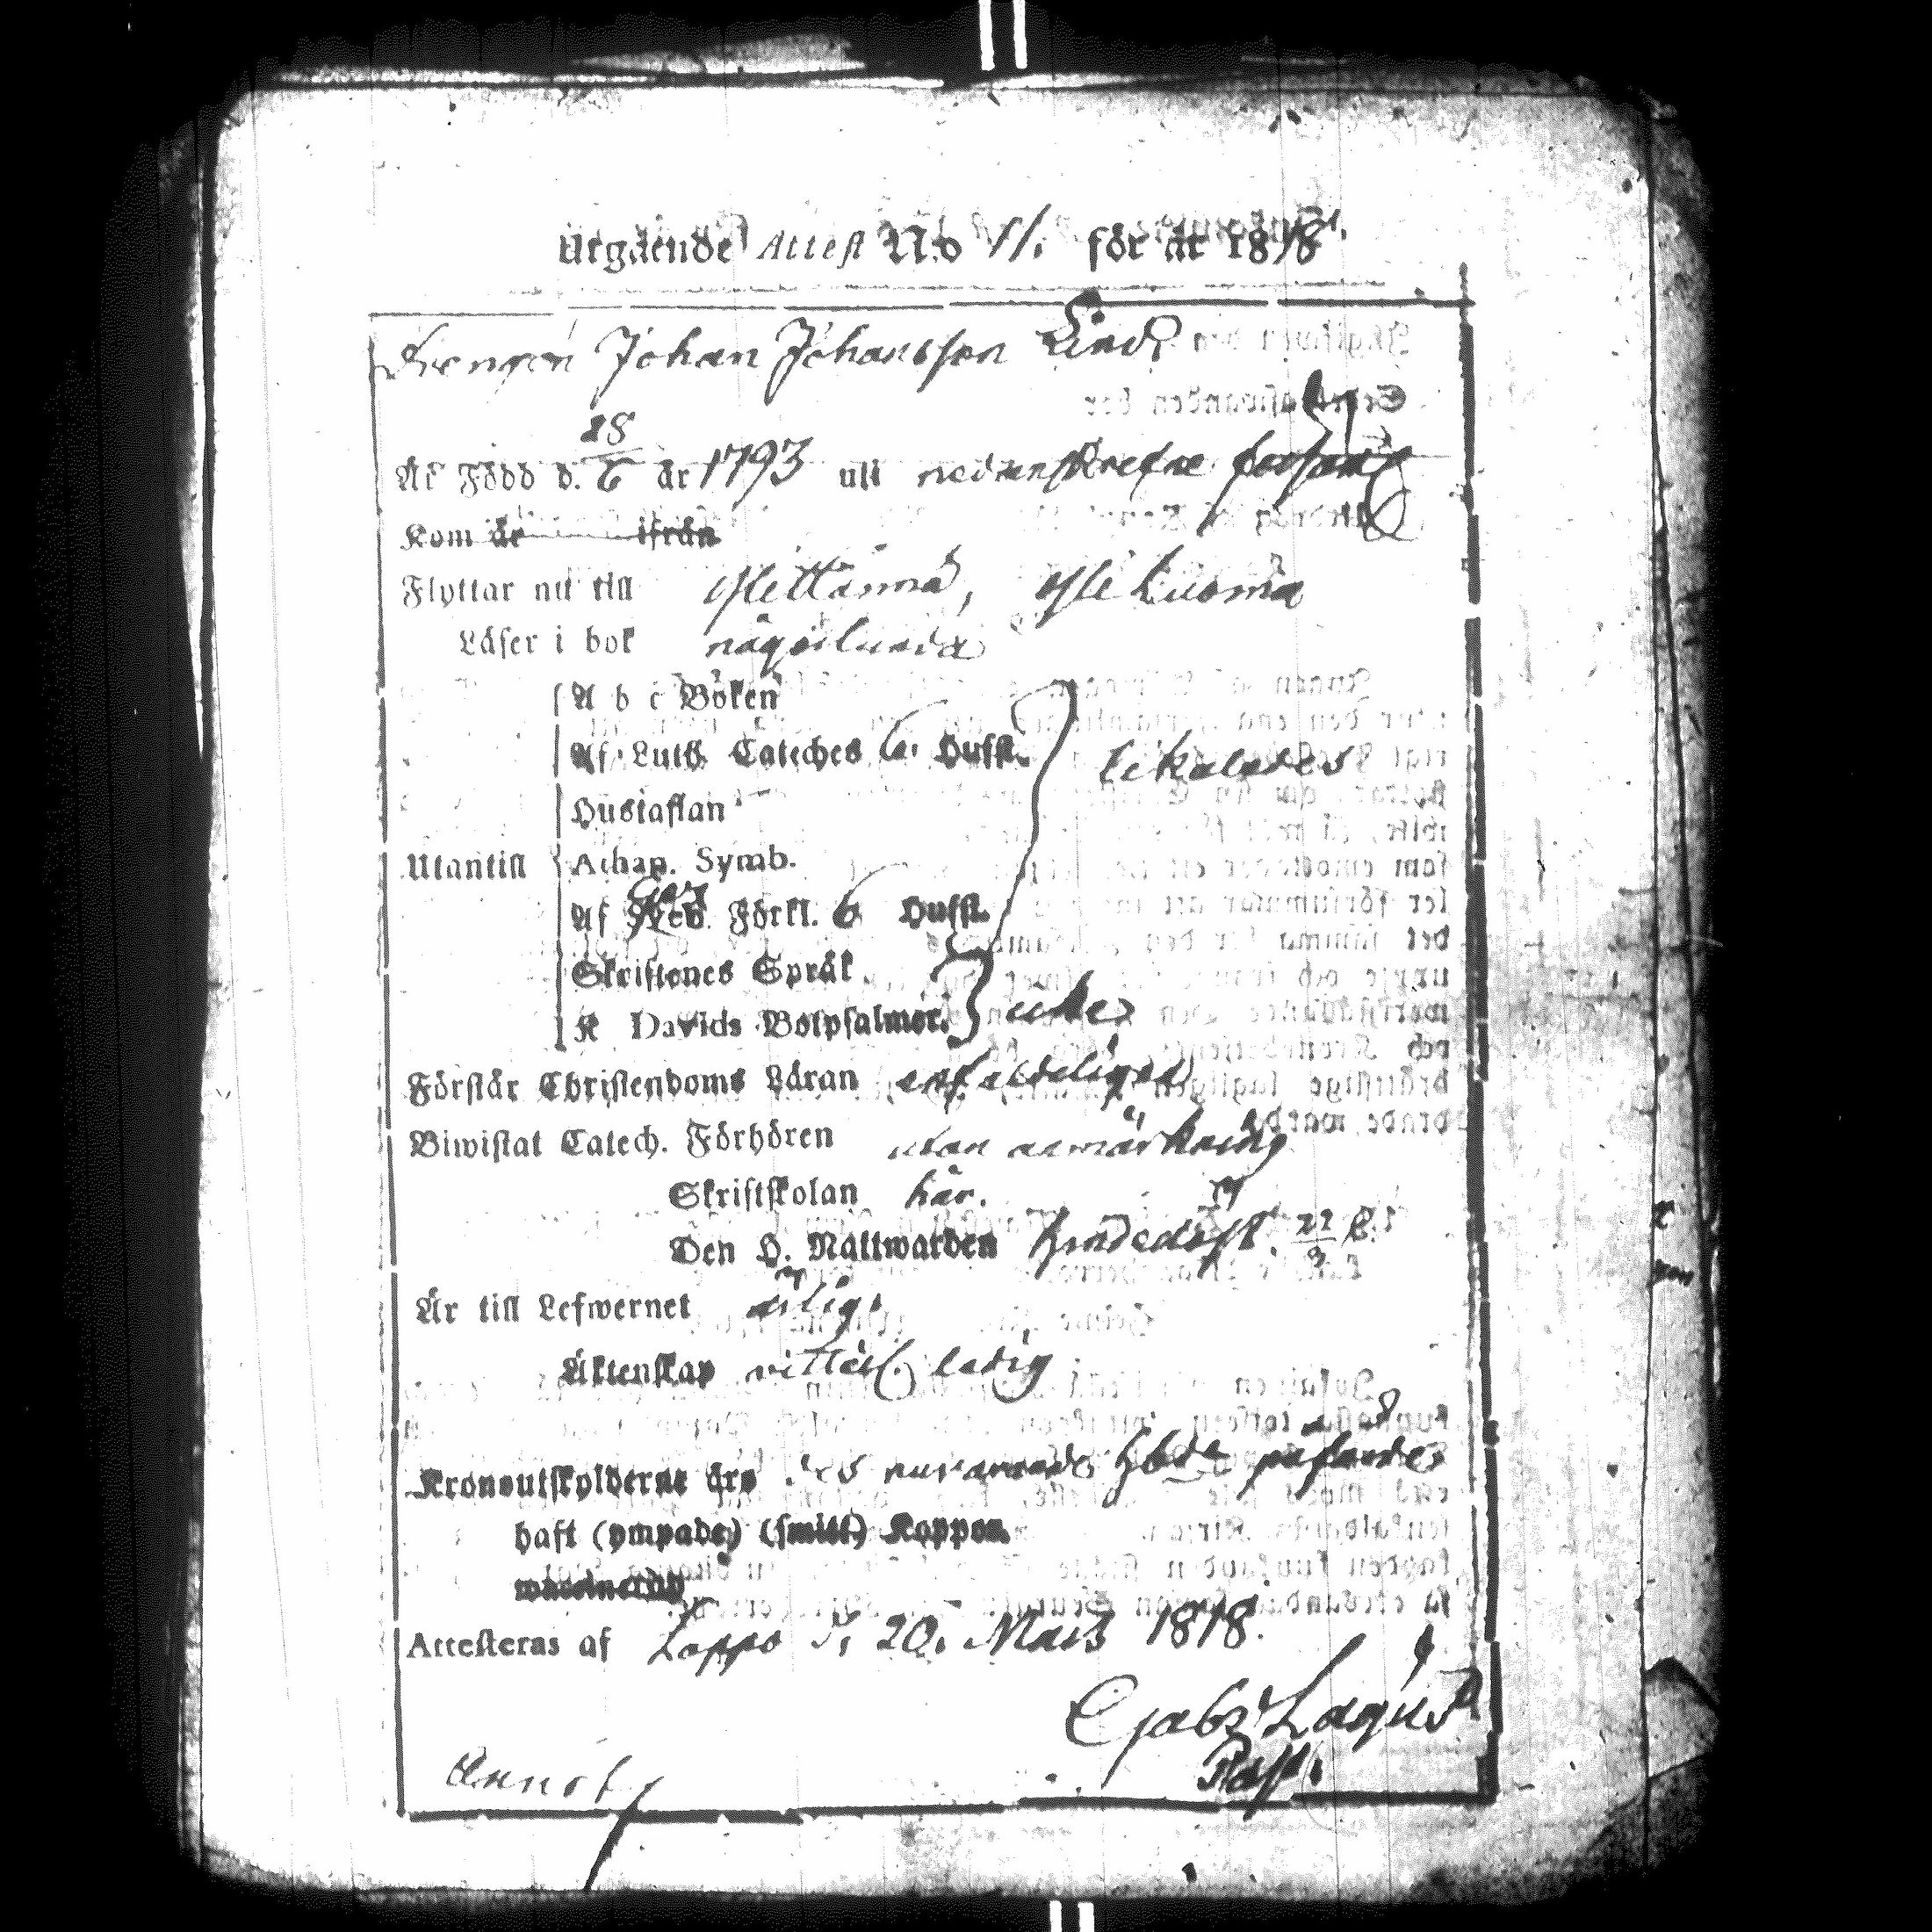 Utgående Attest N:o 11. för år 1818.
Drengen Johan Johansson Lind,
Är Född d. 28/6 år 1793 uti nedanskrefne
Kom år ifrån
Flyttar nu till Ylistaro,
Läser i bok någorlunda
A b c Boken
Af Luth. Cateches 6. Hufst.
likaledes
Hustaflan
Utantill Athan. Symb.
Af Förkl. 6 Hufst.
Skriftenes Språk
K Davids Botpsalmer. icke
Förstår Christendoms Läran enfaldeligen
Biwistat Catech. Förhören utan anmärkning
Skriftskolan här.
Den H. Nattwarden 22/3
Är till Lefwernet ärlig.
Äktenskap ledig
Kronoutskylderne års nuvarande påförde
haft (ympade) (smitt) Koppor.
Attesteras af Lappo d. 20. Mars 1818.
Gabr Lagus
Past.
Annot